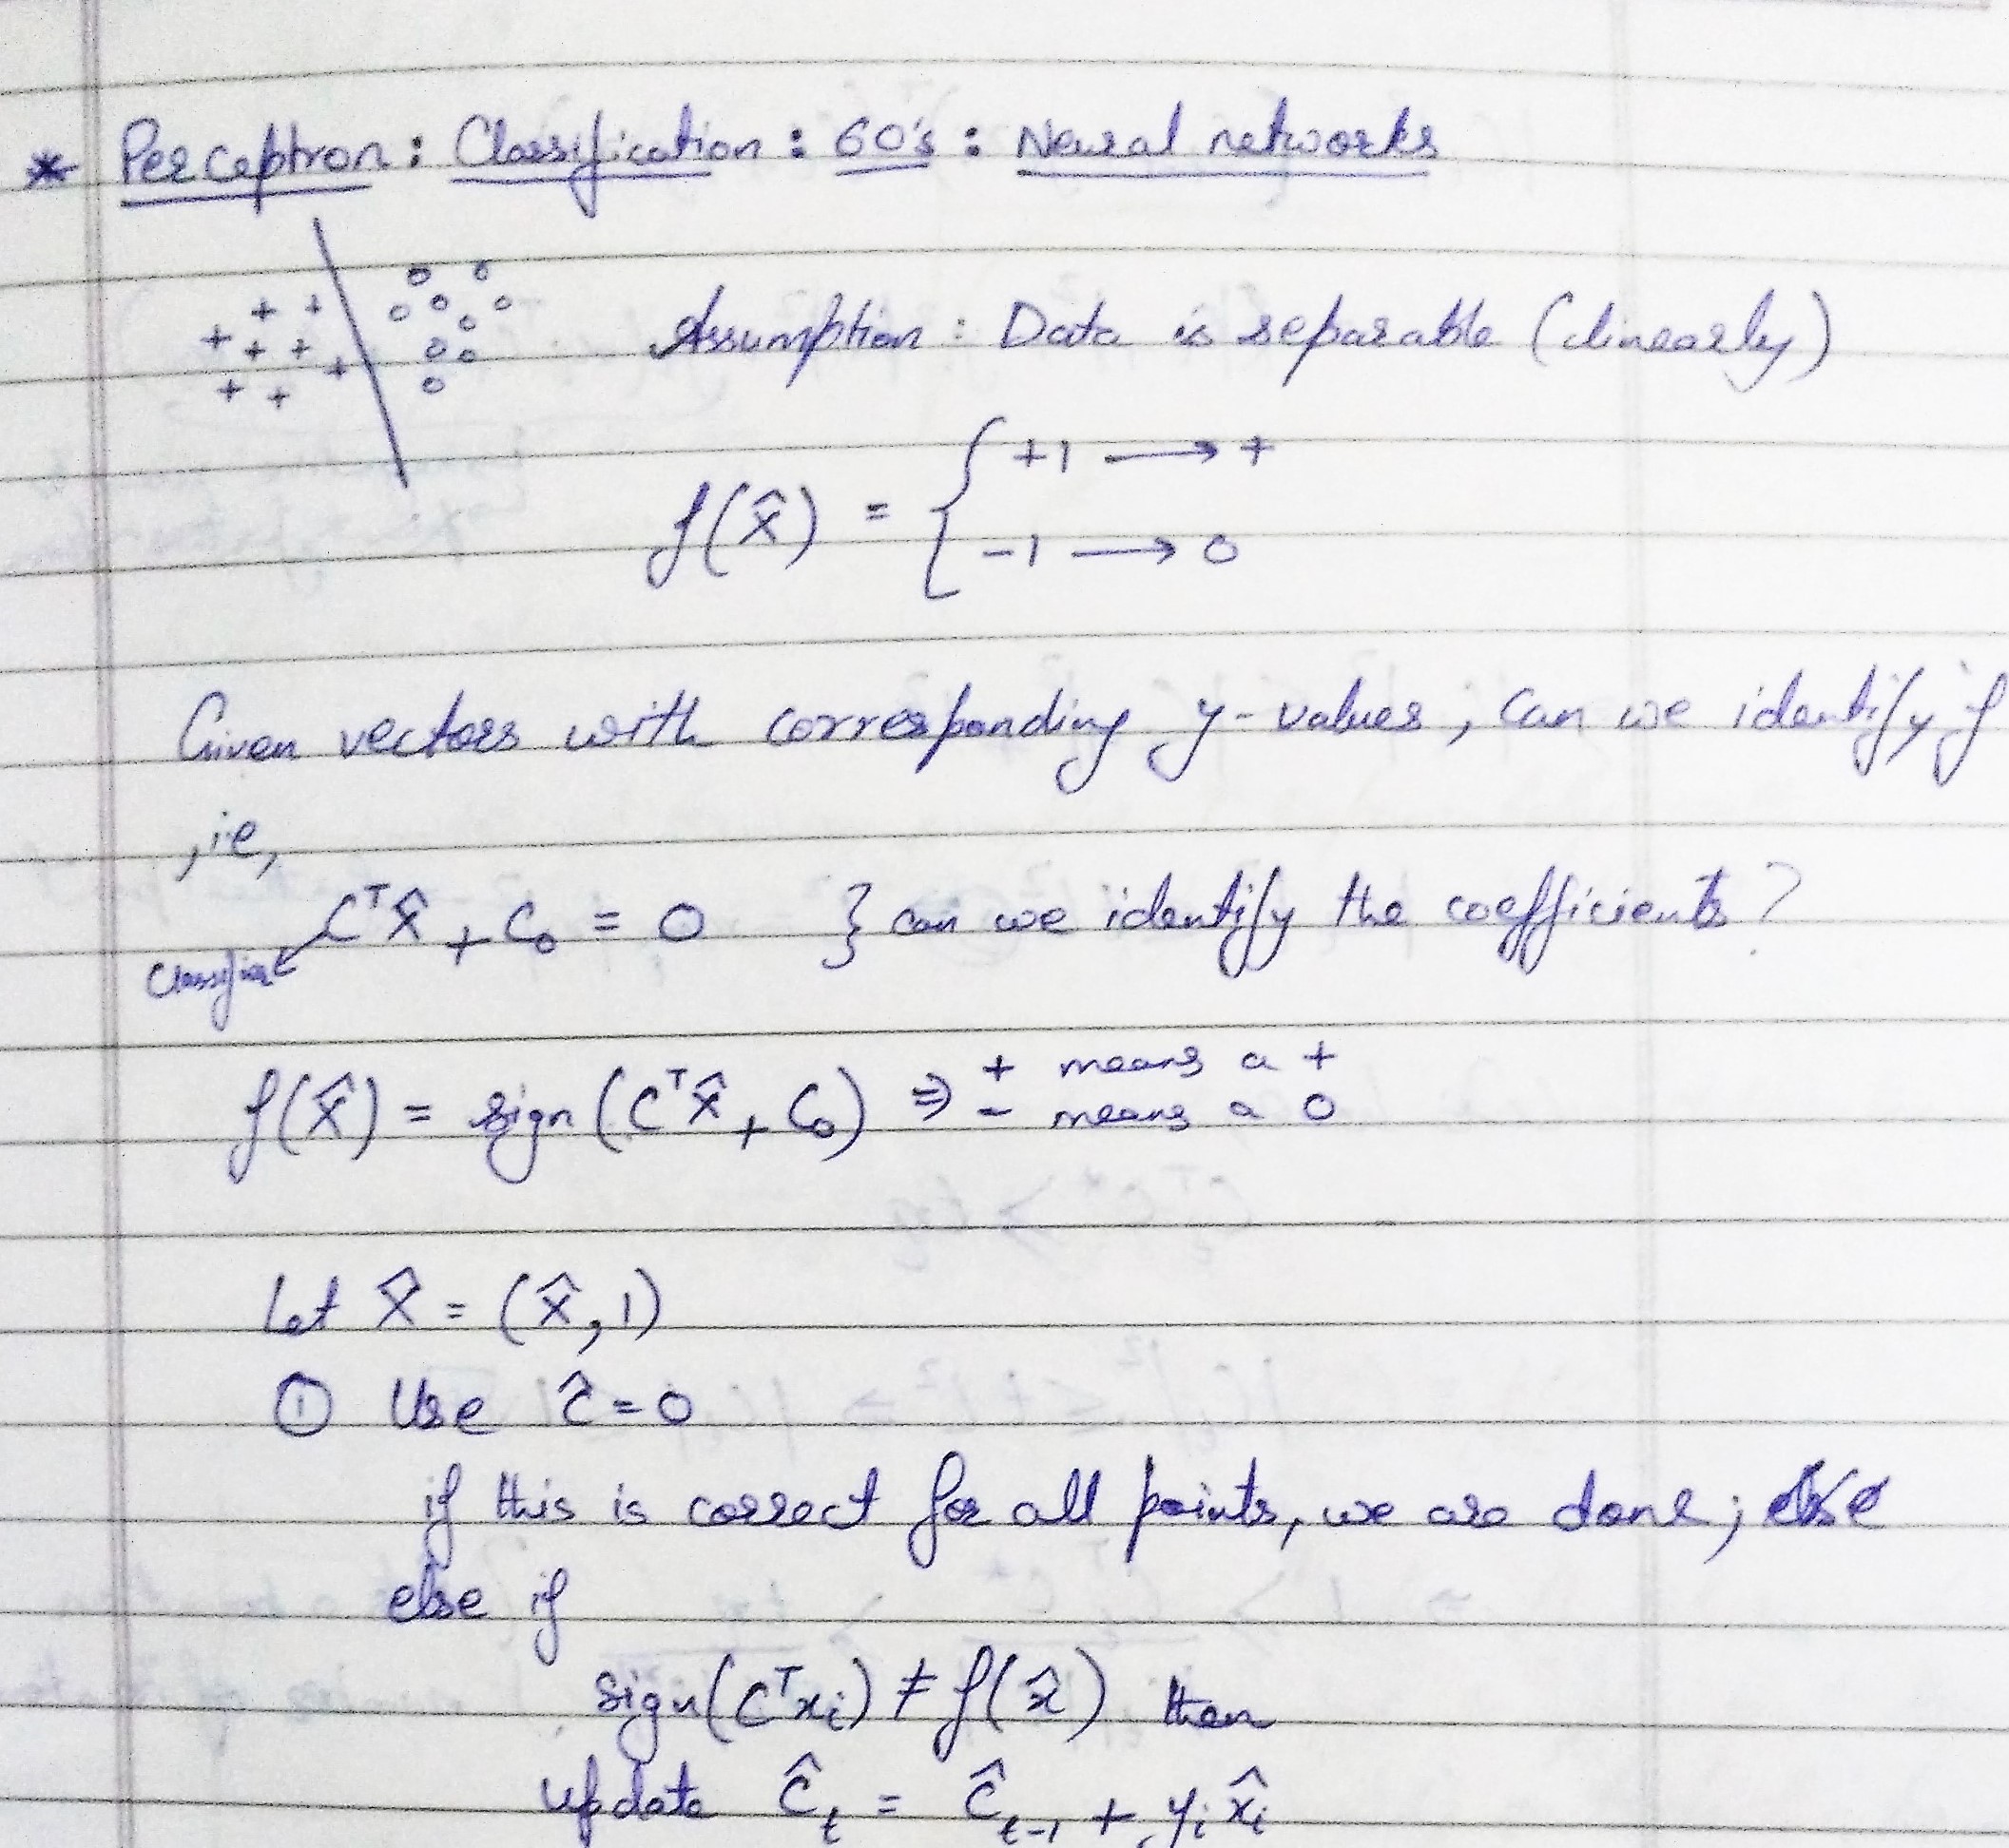 * Perceptron : Classification : 60's : Neural networks
Assumption : Data is separable (linearly)
f(x̂) = { +1 → +
-1 → 0
Given vectors with corresponding y-values, can we identify f
, ie,
Cᵀx̂ + C₀ = 0 } can we identify the coefficients?
Classifier
f(x̂) = sign(Cᵀx̂ + C₀) ⇒ + means a +
- means a 0
Let x̂ = (x̂, 1)
① Use ĉ = 0
if this is correct for all points, we are done; else
else if
sign(Cᵀxᵢ) ≠ f(x̂) then
update ĉₜ = ĉₜ₋₁ + yᵢ x̂ᵢ